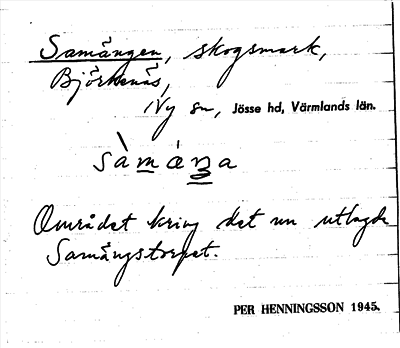 Samången, skogsmark,
Björkenäs,
Ny sn, Jösse hd, Värmlands län.
Området kring det nu utlagda
Samångstorpet.
PER HENNINGSSON 1945.